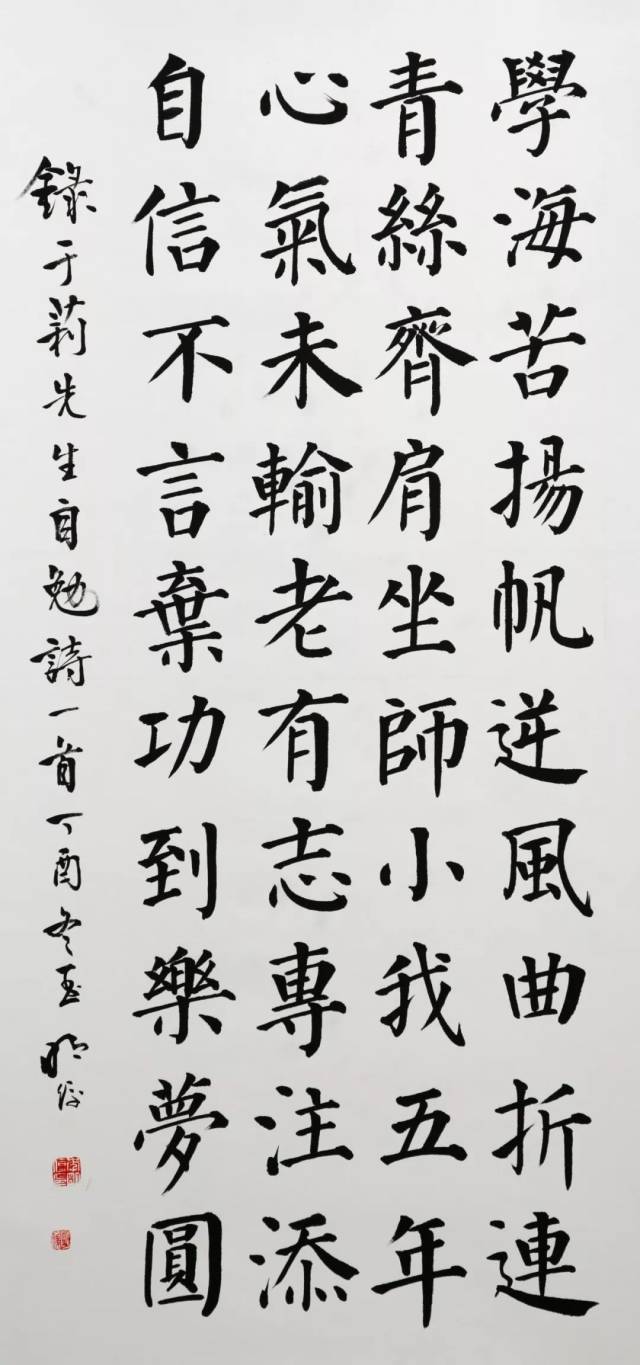 學海苦揚帆逆風曲折連
青絲齊肩坐師小我五年
心氣未輸老有志專注添
自信不言棄功到樂夢圓
錄于莉先生自勉詩一首丁酉冬